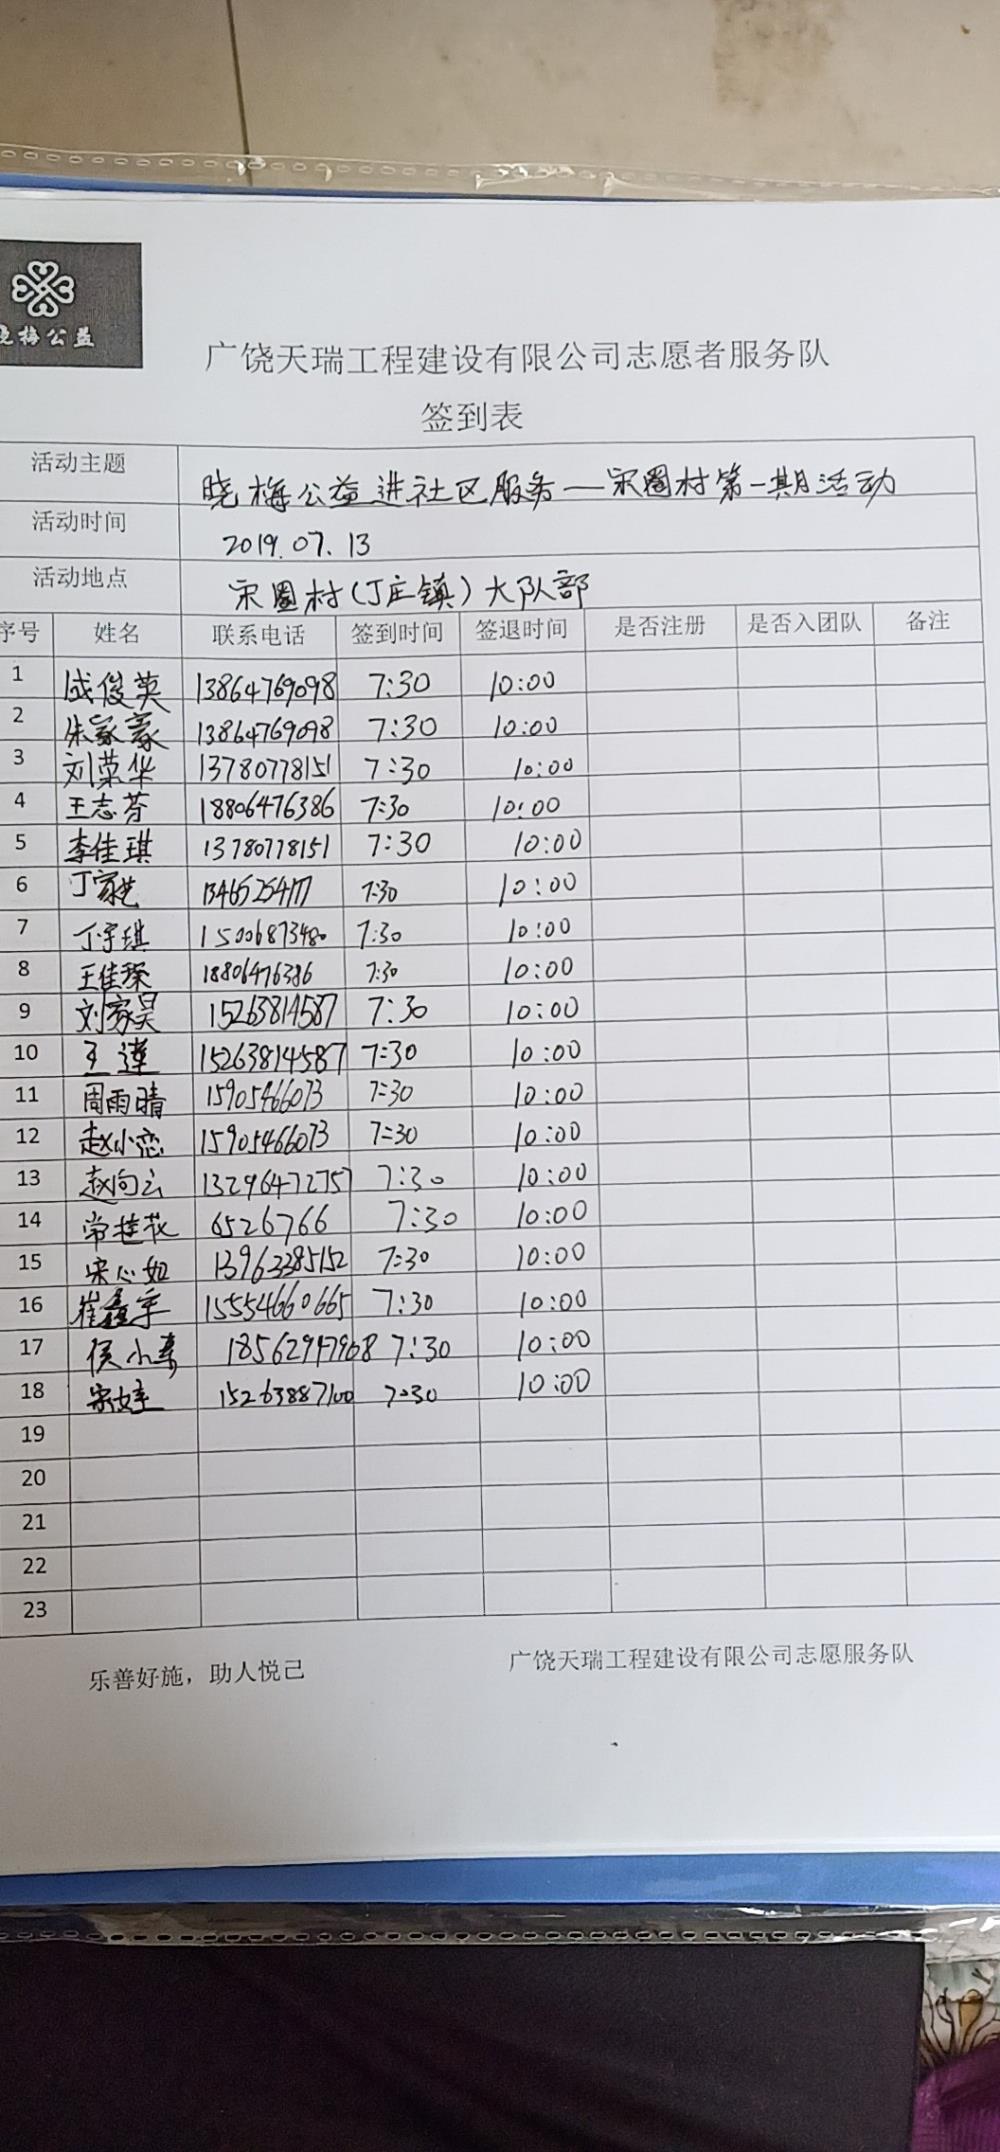 晓梅公益
广饶天瑞工程建设有限公司志愿者服务队
签到表
活动主题 晓梅公益进社区服务—宋圈村第一期活动
活动时间 2019.07.13
活动地点 宋圈村(丁庄镇)大队部
序号 姓名 联系电话 签到时间 签退时间 是否注册 是否入团队 备注
1 成俊英 13864769098 7:30 10:00
2 朱家豪 13864769098 7:30 10:00
3 刘荣华 13780778151 7:30 10:00
4 王志芬 18806476386 7:30 10:00
5 李佳琪 13780778151 7:30 10:00
6 丁家艺 7:30 10:00
7 丁宇琪 15006873480 7:30 10:00
8 王佳琛 18806476386 7:30 10:00
9 刘家昊 15263814587 7:30 10:00
10 王莲 15263814587 7:30 10:00
11 周雨晴 15905466073 7:30 10:00
12 赵小恋 15905466073 7:30 10:00
13 赵向云 13296472757 7:30 10:00
14 常桂花 6526766 7:30 10:00
15 宋心如 13963385152 7:30 10:00
16 崔鑫宇 15554660665 7:30 10:00
17 侯小寿 18562947968 7:30 10:00
18 宋婷 15263887100 7:30 10:00
19
20
21
22
23
乐善好施，助人悦己 广饶天瑞工程建设有限公司志愿服务队